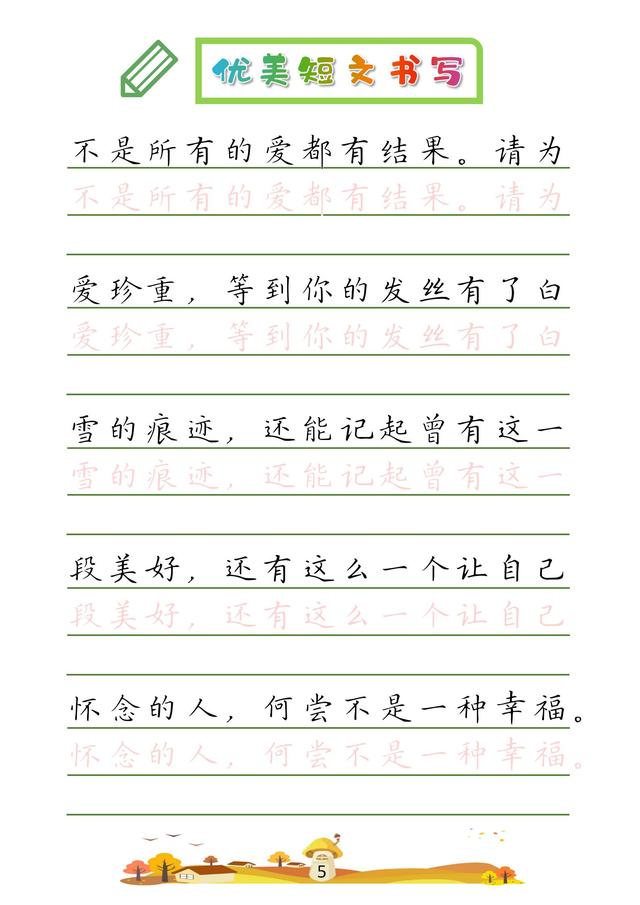 优美短文书写
不是所有的爱都有结果。请为
不是所有的爱都有结果。请为
爱珍重，等到你的发丝有了白
爱珍重，等到你的发丝有了白
雪的痕迹，还能记起曾有这一
雪的痕迹，还能记起曾有这一
段美好，还有这么一个让自己
段美好，还有这么一个让自己
怀念的人，何尝不是一种幸福。
怀念的人，何尝不是一种幸福。
5